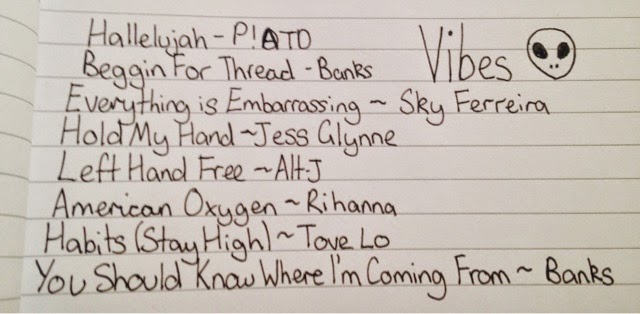 Hallelujah - P!ATD
Vibes
Beggin For Thread - Banks
Everything is Embarrassing ~ Sky Ferreira
Hold My Hand ~ Jess Glynne
Left Hand Free ~ Alt-J
American Oxygen ~ Rihanna
Habits (Stay High) ~ Tove Lo
You Should Know Where I'm Coming From ~ Banks